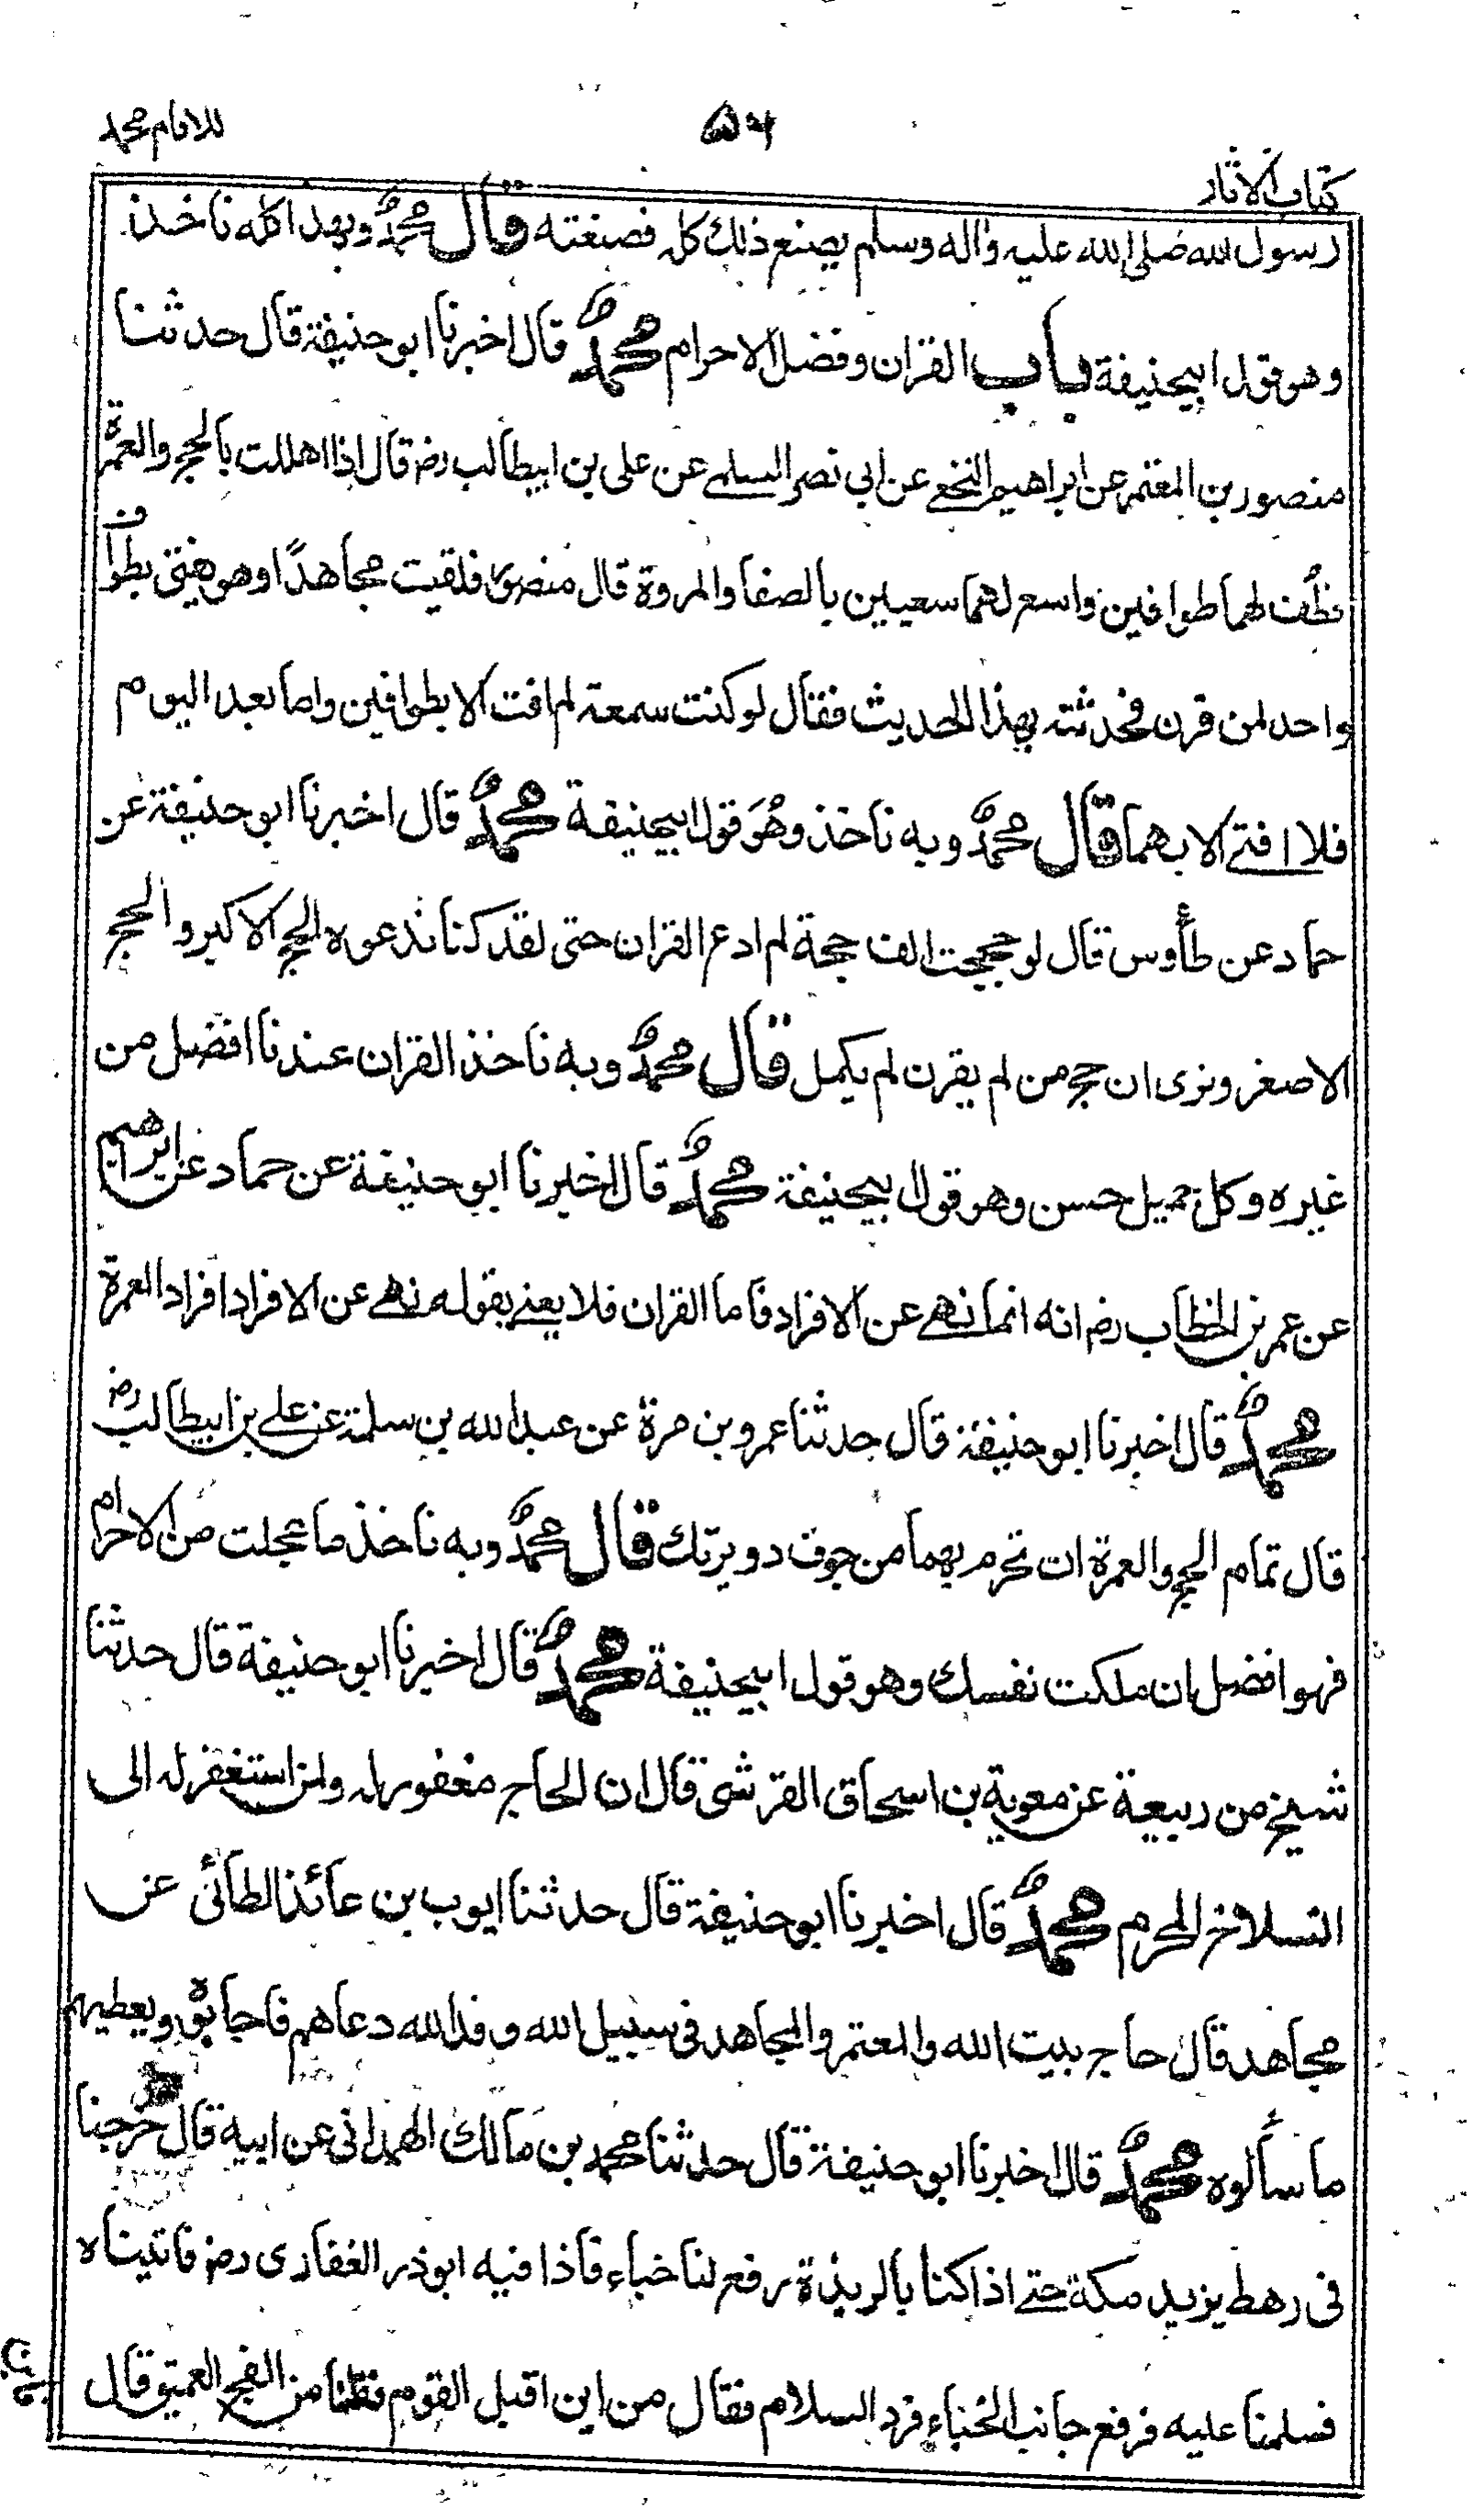 كتاب الاثار
٥٦
للامام محمد
رسول الله صلى الله عليه واله وسلم يصنع ذلك كله فصنعته قال محمد وبهذا كله ناخذ
وهو قول ابيحنيفة باب القران وفضل الاحرام محمد قال اخبرنا ابو حنيفة قال حدثنا
منصور بن المعتمر عن ابراهيم النخعى عن ابي نصر السلمى عن على بن ابيطالب رض قال اذا اهللت بالحج والعمرة
فطف لهما طوافين واسع لهما سعيين بالصفا والمروة قال منصور فلقيت مجاهدًا وهو يفتى بطواف
واحد لمن قرن فحدثته بهذا الحديث فقال لو كنت سمعته لم افت الا بطوافين واما بعد اليوم
فلا افتى الا بهما قال محمد وبه ناخذ وهُوَ قول ابيحنيفة محمد قال اخبرنا ابو حنيفة عن
حماد عن طاؤس قال لو حججت الف حجة لم ادع القران حتى لقد كنا ندعوه الحج الاكبر والحج
الاصغر ونرى ان حج من لم يقرن لم يكمل قال محمد وبه ناخذ القران عندنا افضل من
غيره وكل جميل حسن وهو قول ابيحنيفة محمد قال اخبرنا ابو حنيفة عن حماد عن ابراهيم
عن عمر بن الخطاب رض انه انما نهى عن الافراد فاما القران فلا يعنى بقوله نهى عن الافراد افراد العمرة
محمد قال اخبرنا ابو حنيفة قال حدثنا عمرو بن مرة عن عبد الله بن سلمة عن على بن ابيطالب رض
قال تمام الحج والعمرة ان تحرم بهما من جوف دويرتك قال محمد وبه ناخذ ما عجلت من الاحرام
فهو افضل ان ملكت نفسك وهو قول ابيحنيفة محمد قال اخبرنا ابو حنيفة قال حدثنا
شيخ من ربيعة عن معوية بن اسحاق القرشى قال ان الحاج مغفور له ولمن استغفر له الى
انسلاخ المحرم محمد قال اخبرنا ابو حنيفة قال حدثنا ايوب بن عائذ الطائى عن
مجاهد قال حاج بيت الله والمعتمر والمجاهد فى سبيل الله وفد الله دعاهم فاجابوه ويعطيهم
ما سألوه محمد قال اخبرنا ابو حنيفة قال حدثنا محمد بن مالك الهمدانى عن ابيه قال خرجنا
فى رهط يزيد مكة حتى اذا كنا بالربذة رفع لنا خباء فاذا فيه ابو ذر الغفارى رض فاتيناه
فسلمنا عليه فرفع جانب الخباء فرد السلام فقال من اين اقبل القوم فقلنا من الفج العميق قال